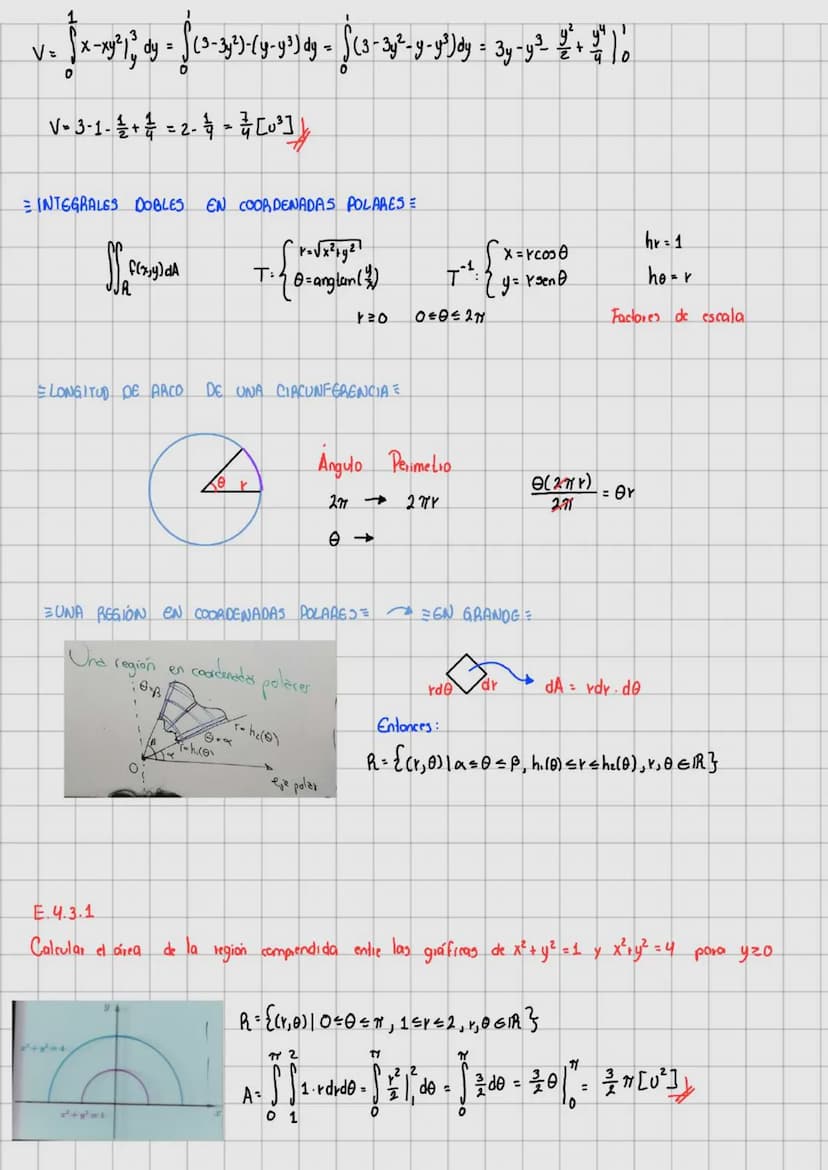 V = ∫₀¹ x-xy²|ᵧ³ dy = ∫₀¹ (3-3y²)-(y-y³) dy = ∫₀¹ (3-3y²-y-y³)dy = 3y-y³- y²/2 + y⁴/4 |₀¹
V = 3-1- 1/2 + 1/4 = 2- 1/4 = 7/4 [u³]
≡ INTEGRALES DOBLES EN COORDENADAS POLARES ≡
∬_R f(x,y)dA T: { r=√(x²+y²) T⁻¹: { x = r cos θ hr = 1
θ = angtan(y/x) y = r sen θ hθ = r
r≥0 0≤θ≤2π Factores de escala
≡ LONGITUD DE ARCO DE UNA CIRCUNFERENCIA ≡
θ r
Ángulo Perimetro
2π → 2πr
θ →
θ(2πr)/2π = θr
≡ UNA REGIÓN EN COORDENADAS POLARES ≡ → ≡ EN GRANDE ≡
Una región en coordenadas polares
θ=β
r=h₂(θ)
θ=α
r=h₁(θ)
β
α
O
eje polar
rdθ dr dA = rdr · dθ
Entonces:
R = {(r,θ) | α ≤ θ ≤ β, h₁(θ) ≤ r ≤ h₂(θ), r,θ ∈ ℝ}
E.4.3.1
Calcular el área de la region comprendida entre las gráficas de x²+y²=1 y x²+y²=4 para y≥0
y
x²+y²=4
x²+y²=1
x
R = {(r,θ) | 0≤θ≤π, 1≤r≤2, r,θ∈ℝ}
A = ∫₀^π ∫₁² 1·rdrdθ = ∫₀^π r²/2 |₁² dθ = ∫₀^π 3/2 dθ = 3/2 θ |₀^π = 3/2 π [u²]